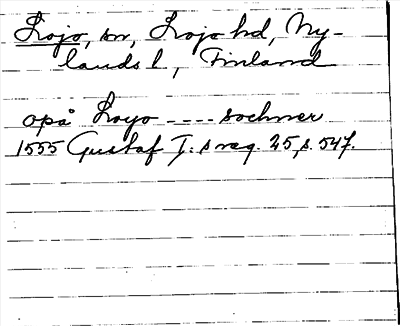 Lojo, sn, Lojo hd, Ny-
lands l, Finland
opå Loyo ---- sochner
1555 Gustaf I:s reg. 25, s. 547.